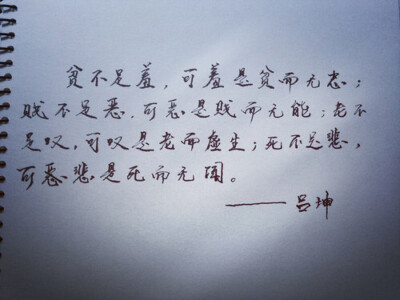 贫不足羞，可羞是贫而无志；
贱不足恶，可恶是贱而无能；老不
足叹，可叹是老而虚生；死不足悲，
可恶悲是死而无闻。
——吕坤